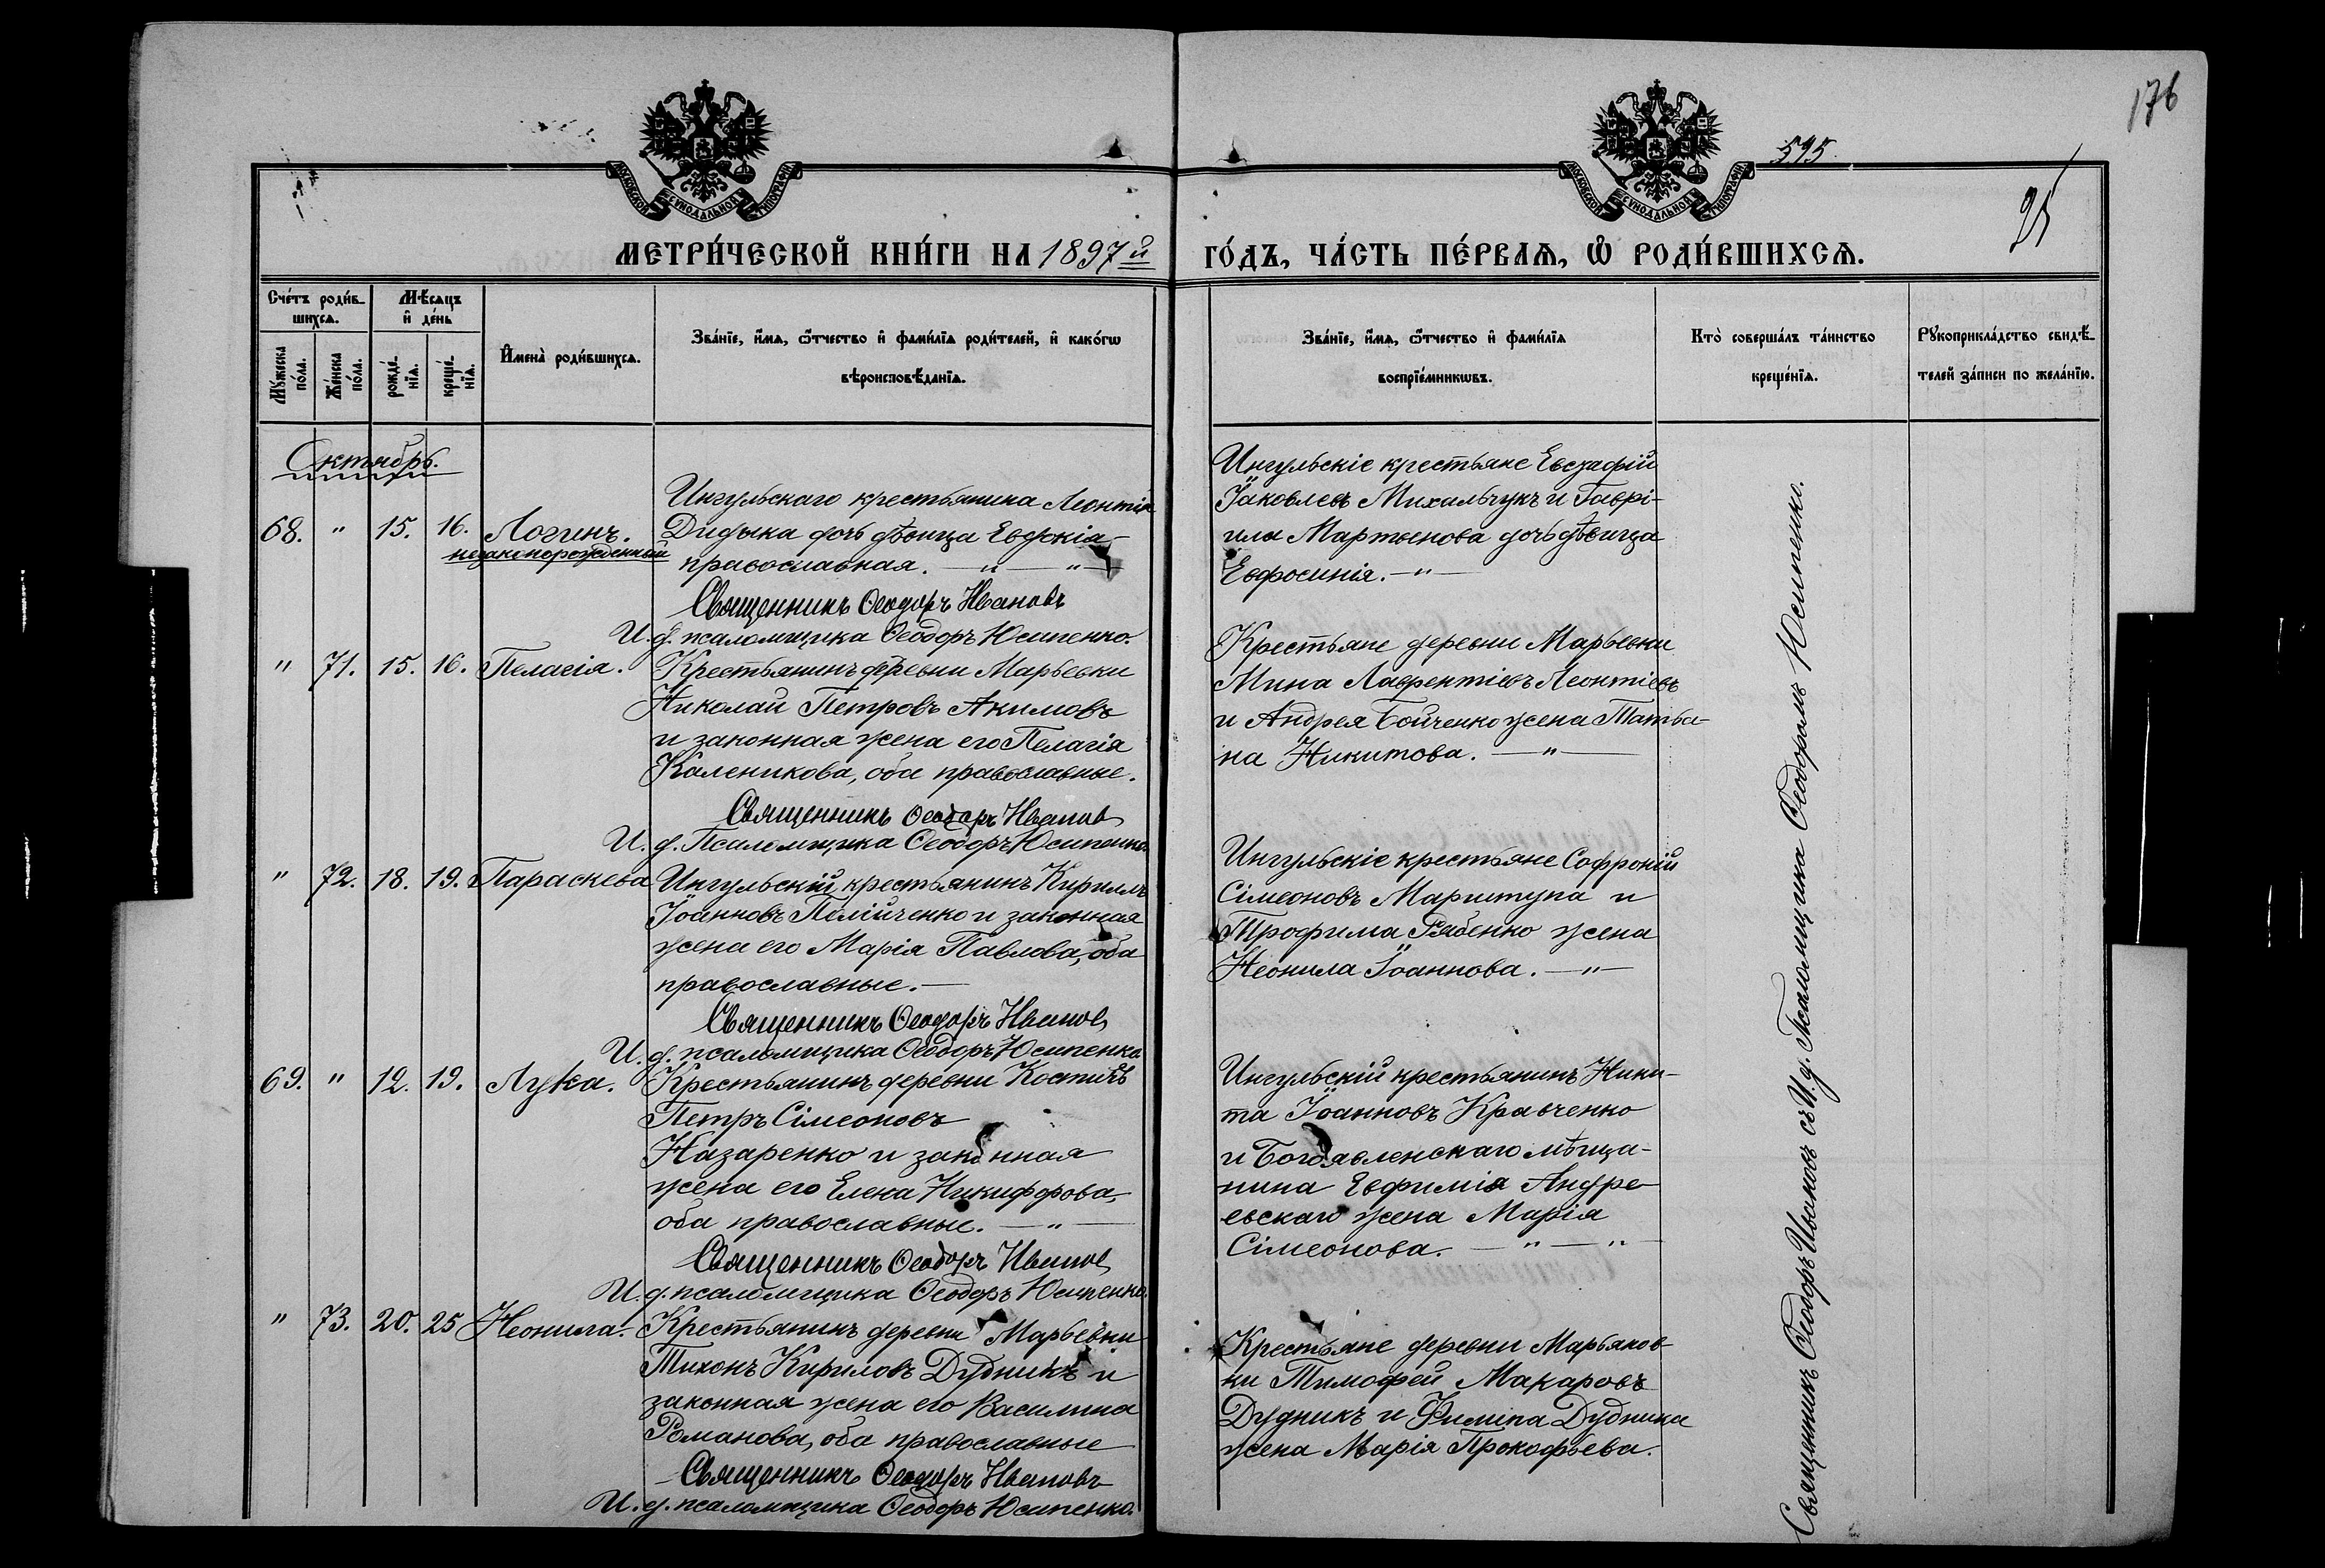 176
595.
25
МОСКОВСКОЙ СѴНОДАЛЬНОЙ ТИПОГРАФІИ
МОСКОВСКОЙ СѴНОДАЛЬНОЙ ТИПОГРАФІИ
МЕТРИ́ЧЕСКОЙ КНИ́ГИ НА 1897й ГО́ДЪ, ЧА́СТЬ ПЕ́РВАѦ, Ѡ РОДИ́ВШИХСѦ.
Сче́тъ роди́в-
шихсѧ.
Мѣ́сяцъ
и де́нь
Мꙋжеска
по́ла.
Же́нска
по́ла.
рожде́-
нїѧ.
креще́-
нїѧ.
Имена̀ роди́вшихсѧ.
Зва́нїе, и́мѧ, ѻ́тчество и фами́лїѧ роди́телей, и како́гѡ
вѣроисповѣ́данїѧ.
Зва́нїе, и́мѧ, ѻ́тчество и фами́лїѧ
воспрїе́мникѡвъ.
Кто̀ соверша́лъ та́инство
креще́нїѧ.
Рꙋкоприкла́дство свидѣ́-
телей за́писи по жела́нїю.
Октябрь.
68. " 15. 16. Логинъ.
незаконорожденный
Ингульскаго крестьянина Леонтія
Дидыка дочь дѣвица Евдокія-
православная. — " — " —
Священникъ Ѳеодоръ Ивановъ
И. д. псаломщика Ѳеодоръ Юсипенко.
Ингульскіе крестьяне Евстафій
Іаковлевъ Михальчукъ и Гаврі-
ила Мартынова дочь дѣвица
Евфросинія. — " —
" 71. 15. 16. Пелагія.
Крестьянинъ деревни Марьевки
Николай Петровъ Акимовъ
и законная жена его Пелагія
Каленикова, оба православные.
Священникъ Ѳеодоръ Иванов
И. д. Псаломщика Ѳеодоръ Юсипенко
Крестьяне деревни Марьевки
Мина Лаврентіевъ Леонтіевъ
и Андрея Бойченко жена Татья-
на Никитова. — " —
" 72. 18. 19. Параскева
Ингульскій крестьянинъ Кириллъ
Іоанновъ Палійченко и законная
жена его Марія Павлова, оба
православные. —
Священникъ Ѳеодоръ Иванов
И. д. псаломщика Ѳеодоръ Юсипенко
Ингульскіе крестьяне Софроній
Сімеоновъ Мариштупа и
Трофима Рябенко жена
Неонила Іоаннова. — " —
69. " 12. 19. Лука.
Крестьянинъ деревни Костичъ
Петръ Сімеоновъ
Назаренко и законная
жена его Елена Никифорова,
оба православные. — " —
Священникъ Ѳеодоръ Иванов
И. д. псаломщика Ѳеодоръ Юсипенко.
Ингульскій крестьянинъ Ники-
та Іоанновъ Кравченко
и Богоявленскаго мѣща-
нина Евфимія Андре-
евскаго жена Марія
Сімеонова. — " — " —
" 73. 20. 25 Неонила.
Крестьянинъ деревни Марьевки
Тихонъ Кириловъ Дудникъ и
законная жена его Василина
Романова, оба православные
Священникъ Ѳеодоръ Ивановъ
И. д. псаломщика Ѳеодоръ Юсипенко.
Крестьяне деревни Марьянов-
ки Тимофей Макаровъ
Дудникъ и Филипа Дудника
жена Марія Прокофьева.
Священникъ Ѳеодоръ Ивановъ съ И. д. Псаломщика Ѳеодоромъ Юсипенко.